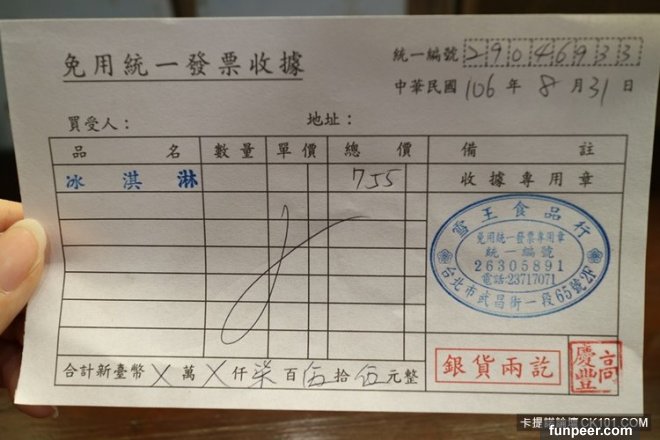 免用統一發票收據
統一編號 29046933
中華民國 106 年 8 月 31 日
買受人： 地址：
品 名 數量 單價 總 價 備 註
冰淇淋 755 收據專用章
雪王食品行
免用統一發票專用章
統一編號
26305891
電話:23717071
台北市武昌街一段65號2F
合計新臺幣 X 萬 X 仟 柒 百 伍 拾 伍 元整
銀貨兩訖
高慶豐
卡提諾論壇 CK101.COM
funpeer.com